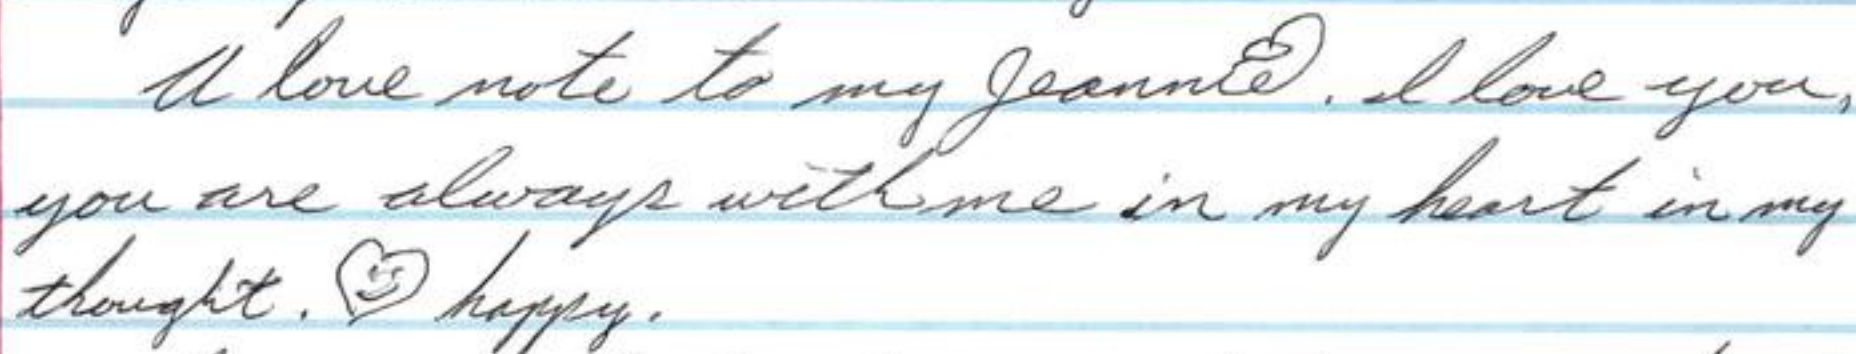 A love note to my Jeannie. I love you,
you are always with me in my heart in my
thought. happy.